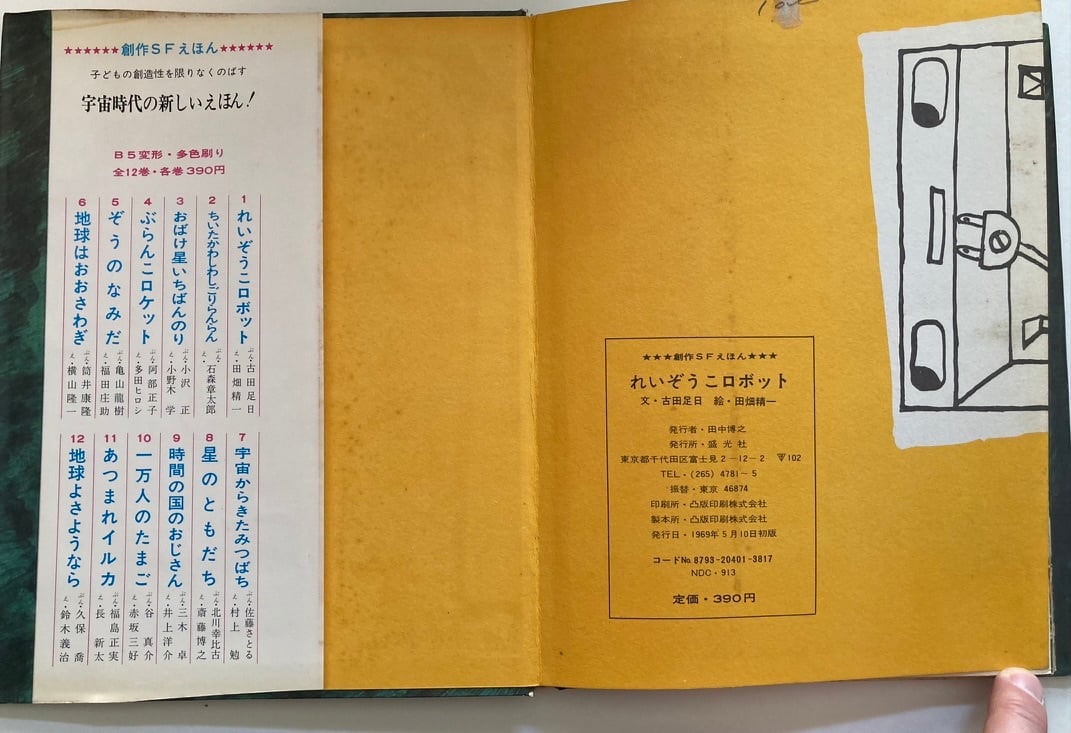 ★★★★★★創作SFえほん★★★★★★
子どもの創造性を限りなくのばす
宇宙時代の新しいえほん!
B5変形・多色刷り
全12巻・各巻390円
1 れいぞうこロボット ぶん・古田足日 え・田畑精一
2 ちいたかわしわしごりらんらん ぶん・え・石森章太郎
3 おばけ星いちばんのり ぶん・小沢正 え・小野木学
4 ぶらんこロケット ぶん・阿部正子 え・多田ヒロシ
5 ぞうのなみだ ぶん・亀山龍樹 え・福田庄助
6 地球はおおさわぎ ぶん・筒井康隆 え・横山隆一
7 宇宙からきたみつばち ぶん・佐藤さとる え・村上勉
8 星のともだち ぶん・北川幸比古 え・斎藤博之
9 時間の国のおじさん ぶん・三木卓 え・井上洋介
10 一万人のたまご ぶん・谷真介 え・赤坂三好
11 あつまれイルカ ぶん・福島正実 え・長新太
12 地球よさようなら ぶん・久保喬 え・鈴木義治
★★★創作SFえほん★★★
れいぞうこロボット
文・古田足日 絵・田畑精一
発行者・田中博之
発行所・盛光社
東京都千代田区富士見2-12-2 〒102
TEL・(265) 4781~5
振替・東京 46874
印刷所・凸版印刷株式会社
製本所・凸版印刷株式会社
発行日・1969年5月10日初版
コードNo.8793-20401-3817
NDC・913
定価・390円